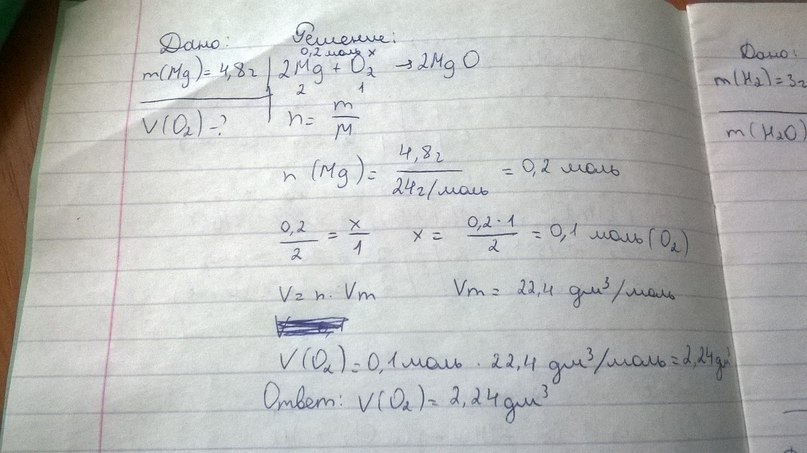 Дано: Решение:
0,2 моль x
m(Mg) = 4,8г 2Mg + O₂ → 2MgO
2 1
V(O₂) - ? n = m/M
n (Mg) = 4,8г / 24г/моль = 0,2 моль
0,2/2 = x/1 x = 0,2·1/2 = 0,1 моль (O₂)
V = n · Vm Vm = 22,4 дм³/моль
V(O₂) = 0,1 моль · 22,4 дм³/моль = 2,24 дм³
Ответ: V(O₂) = 2,24 дм³
Дано:
m(H₂) = 3г
m(H₂O)